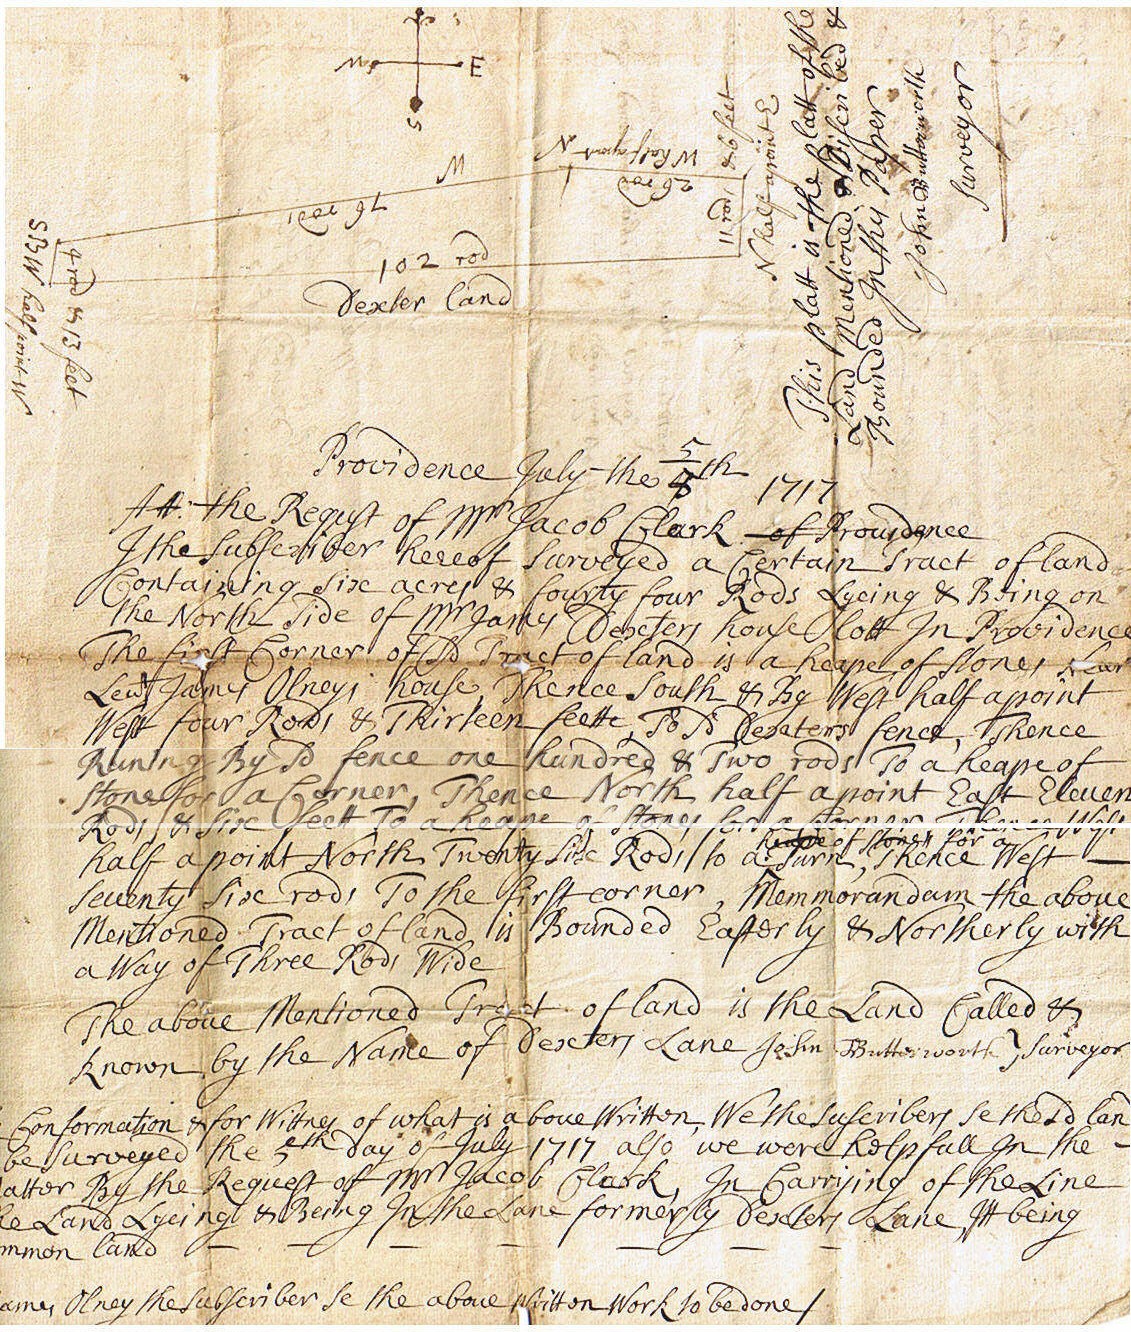 W E
S
N
W half a point N
W
26 rod
11 rod & 6 feet
N half a point E
76 rod
102 rod
Dexter land
4 rod & 13 feet
SBW half point W
This platt is the platt of the
Land Mentioned & Discribed &
Bounded In this Paper
John Butterworth
Surveyor
Providence July the 5th 1717
Att the Requst of Mr Jacob Clark of Providence
I the subscriber hereof Surveyed a Certain Tract of land
Containing six acres & fourty four Rods Lyeing & Being on
the North side of Mr James Dexters house lott In Providence
The first Corner of Sd Tract of land is a heape of stones Near
Lewt James Olneys house, Thence South & By West half a point
West four Rods & Thirteen feett, To Sd Dexters fence, Thence
Runing By Sd fence one hundred & Two rods To a heape of
stones for a Corner, Thence North half a point East Eleven
Rods & six feett To a heape of stones for a corner Thence West
heape of stones for a
half a point North Twenty six Rods to a Turn, Thence West
seventy six rods To the first corner, Memmorandam the above
Mentioned Tract of land is Bounded Easterly & Northerly with
a Way of Three Rods Wide
The above Mentioned Tract of land is the Land Called &
known by the Name of Dexters Lane John Butterworth } surveyor
Conformation & for Wittnes of what is above Written, We the Suscribers se the Sd lan
be surveyed the 5th day of July 1717 also we were helpfull In the
atter By the Request of Mr Jacob Clark, In Carrying of the Line
he Land Lyeing & Being In the Lane formerly Dexters Lane, It being
mmon land
ames Olney the subscriber se the above Written Work to be done